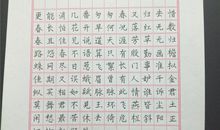 消几番风雨匆匆春又归去惜
春长怕花开早何况落红无数
春且住见说道天涯芳草无归
路怨春不语算只有殷勤画檐
蛛网尽日惹飞絮长门事准拟
佳期又误蛾眉曾有人妒千金
纵买相如赋脉脉此情谁诉君
莫舞君不见玉环飞燕皆尘土
闲愁最苦休去倚危栏斜阳正